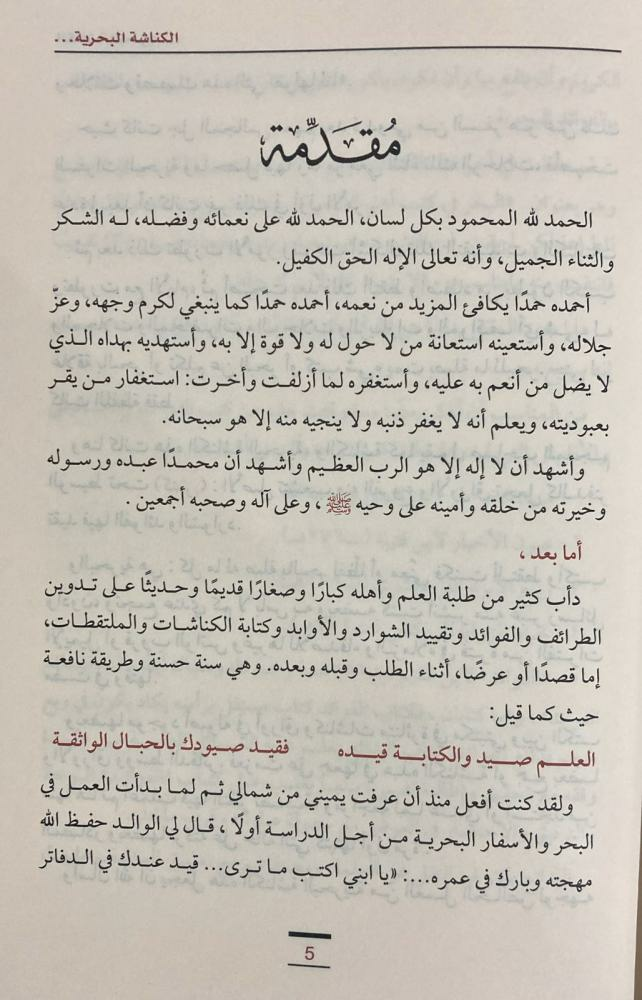 الكناشة البحرية...
مُقَدِّمة
الحمد لله المحمود بكل لسان، الحمد لله على نعمائه وفضله، لـه الشـكر
والثناء الجميل، وأنه تعالى الإله الحق الكفيل.
أحمده حمدًا يكافئ المزيد من نعمه، أحمده حمدًا كما ينبغي لكرم وجهه، وعزّ
جلاله، وأستعينه استعانة من لا حول له ولا قوة إلا به، وأستهديه بهداه الـذي
لا يضل من أنعم به عليه، وأستغفره لما أزلفت وأخرت: استغفار مـن يقـر
بعبوديته، ويعلم أنه لا يغفر ذنبه ولا ينجيه منه إلا هو سبحانه.
وأشهد أن لا إله إلا هو الرب العظـيم وأشـهد أن محمـدًا عبـده ورسـوله
وخيرته من خلقه وأمينه على وحيه ﷺ ، وعلى آله وصحبه أجمعين .
أما بعد ،
دأب كثير من طلبة العلم وأهله كبارًا وصغارًا قديمًا وحديثًا علـى تـدوين
الطرائف والفوائد وتقييد الشوارد والأوابد وكتابة الكناشـات والملتقطـات،
إما قصدًا أو عرضًا، أثناء الطلب وقبله وبعده. وهي سنة حسنة وطريقة نافعـة
حيث كما قيل:
العلـــم صـــيد والكتابـــة قيـــده فقيد صـيودك بالحبـال الواثقـة
ولقد كنت أفعل منذ أن عرفت يميني من شمالي ثم لمـا بـدأت العمـل في
البحر والأسفار البحريـة مـن أجـل الدراسـة أولًا ، قـال لي الوالـد حفـظ الله
مهجته وبارك في عمره...: «يا ابني اكتـب مـا تـرى... قيـد عنـدك في الـدفاتر
5